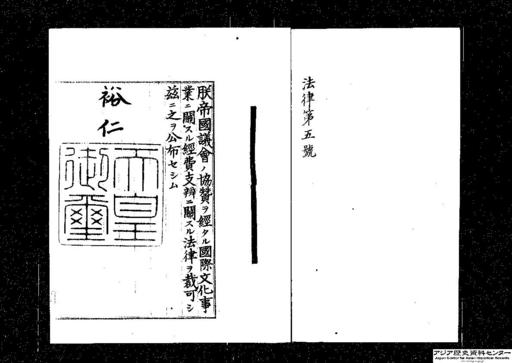 法律第五號
朕帝國議會ノ協賛ヲ經タル國際文化事
業ニ關スル經費支辨ニ關スル法律ヲ裁可シ
茲ニ之ヲ公布セシム
裕仁
天皇
御璽
アジア歴史資料センター
Japan Center for Asian Historical Records